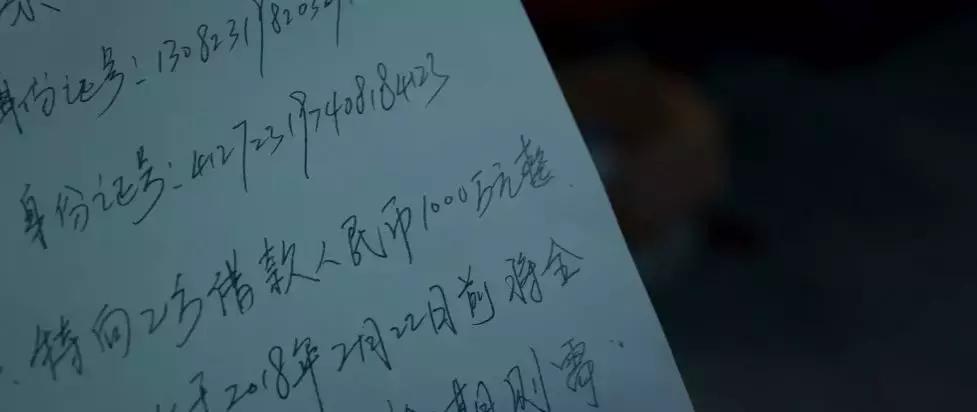 身份证号:13082319820329
身份证号:412723197408184123
特向乙方借款人民币1000万元整
于2018年2月22日前将全
期则需